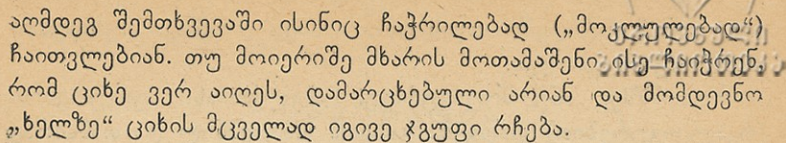 აღმდეგ შემთხვევაში ისინიც ჩაჭრილებად („მოკლულებად“)
ჩაითვლებიან. თუ მოიერიშე მხარის მოთამაშენი ისე ჩაიჭრენ,
რომ ციხე ვერ აიღეს, დამარცხებული არიან და მომდევნო
„ხელზე“ ციხის მცველად იგივე ჯგუფი რჩება.